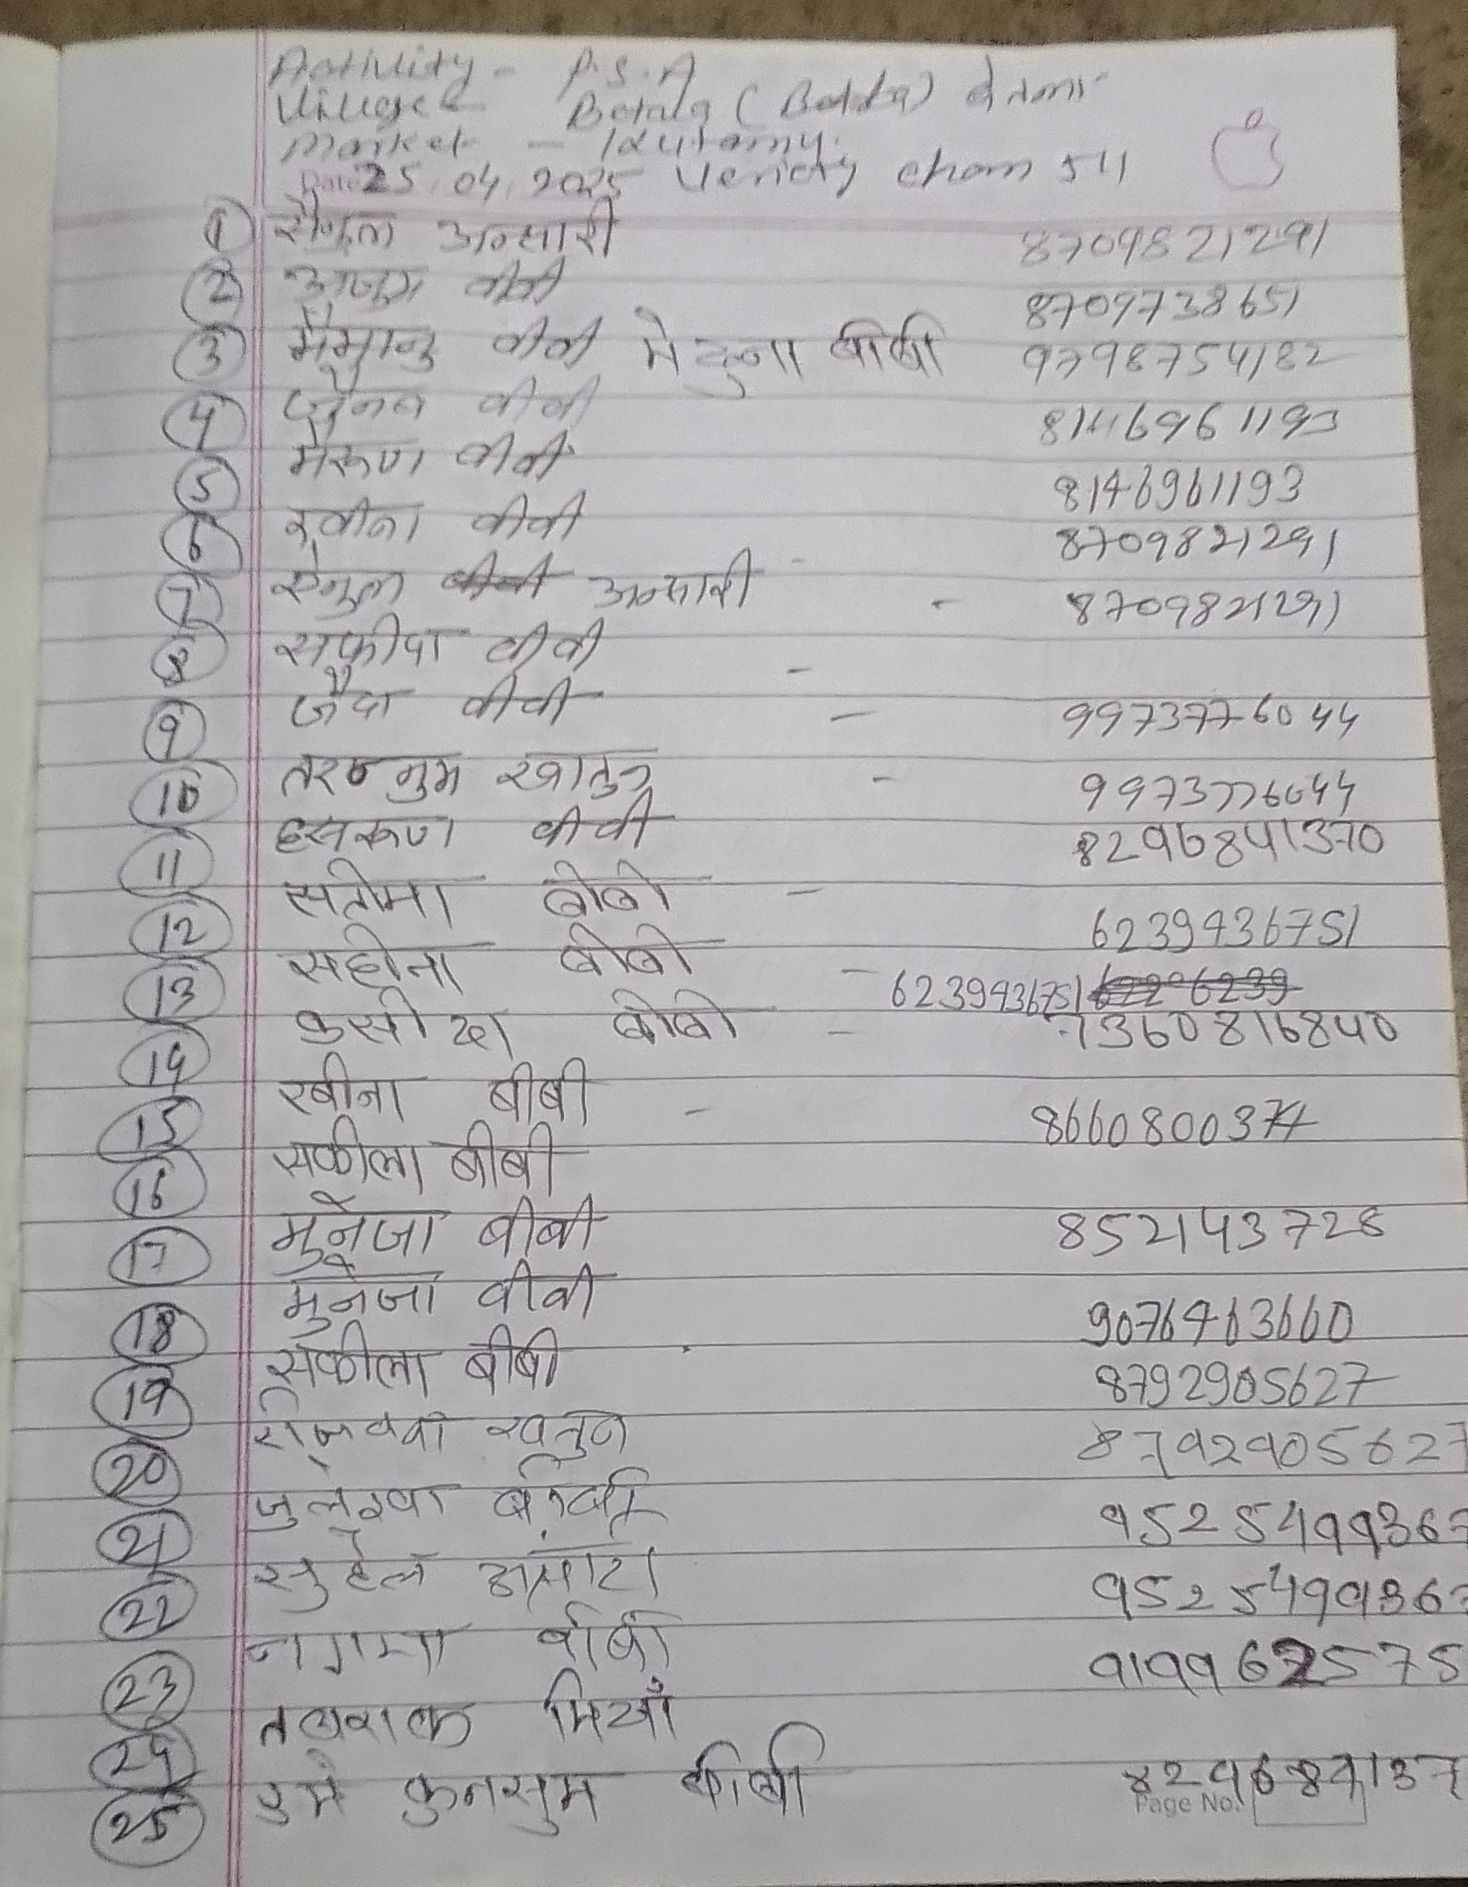 Activity - P.S.A
Village - Betala (Betla)
Market - Kutamu
Date 25.04.2025 Veriety cham 511
1 सैनुल अन्सारी 8709821291
2 बीबी 8709738651
3 मैमुन बीबी मेहुना बीबी 9798754182
4 जैनब बीबी 8146961193
5 मैरुण बीबी 8146961193
6 रवीना बीबी 8709821291
7 सैनुल बीबी अन्सारी - 8709821291
8 सफीदा बीबी -
9 जैदा बीबी - 9973776044
10 तरन्नुम खातुन - 9973776044
11 हसरुण बीबी 8296841370
12 सलीमा बीबी - 6239436751
13 सहीना बीबी - 6239436751 62296239
14 कुसीदा बीबी - 7360816840
15 रबीना बीबी - 8660800374
16 सकीला बीबी
17 मुनेजा बीबी 852143728
18 मुनेजा बीबी 9076463660
19 सकीला बीबी 8792905627
20 खातुन 8792905627
21 जुलेखा बीबी 9525499367
22 सुहेल अंसारी 9525499367
23 नगमा बीबी 919962575
24 तबारक मियाँ
25 उमे कुलसुम बीबी 829684137
Page No.